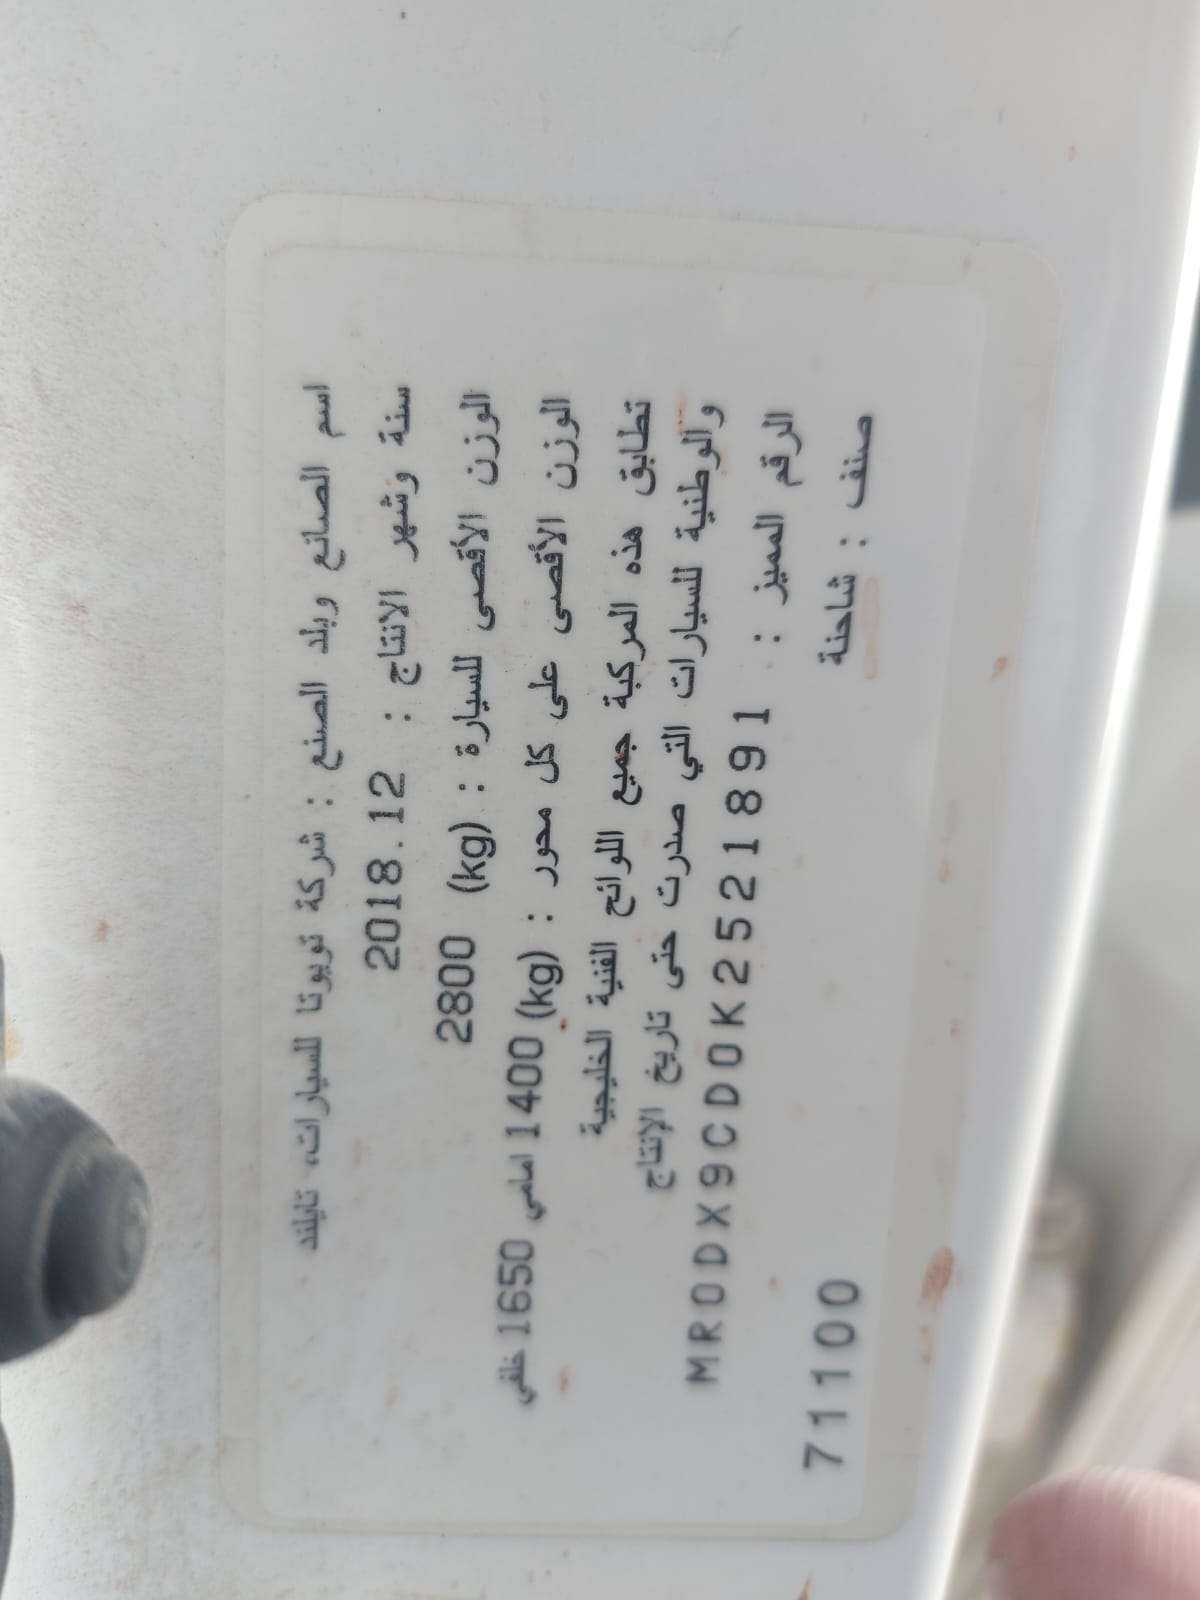 اسم الصانع وبلد الصنع : شركة تويوتا للسيارات، تايلند
سنة وشهر الانتاج : 2018.12
الوزن الأقصى للسيارة : (kg) 2800
الوزن الأقصى على كل محور : (kg) 1400 امامي 1650 خلفي
تطابق هذه المركبة جميع اللوائح الفنية الخليجية
والوطنية للسيارات التي صدرت حتى تاريخ الإنتاج
الرقم المميز : MR0DX9CD0K2521891
صنف : شاحنة
71100